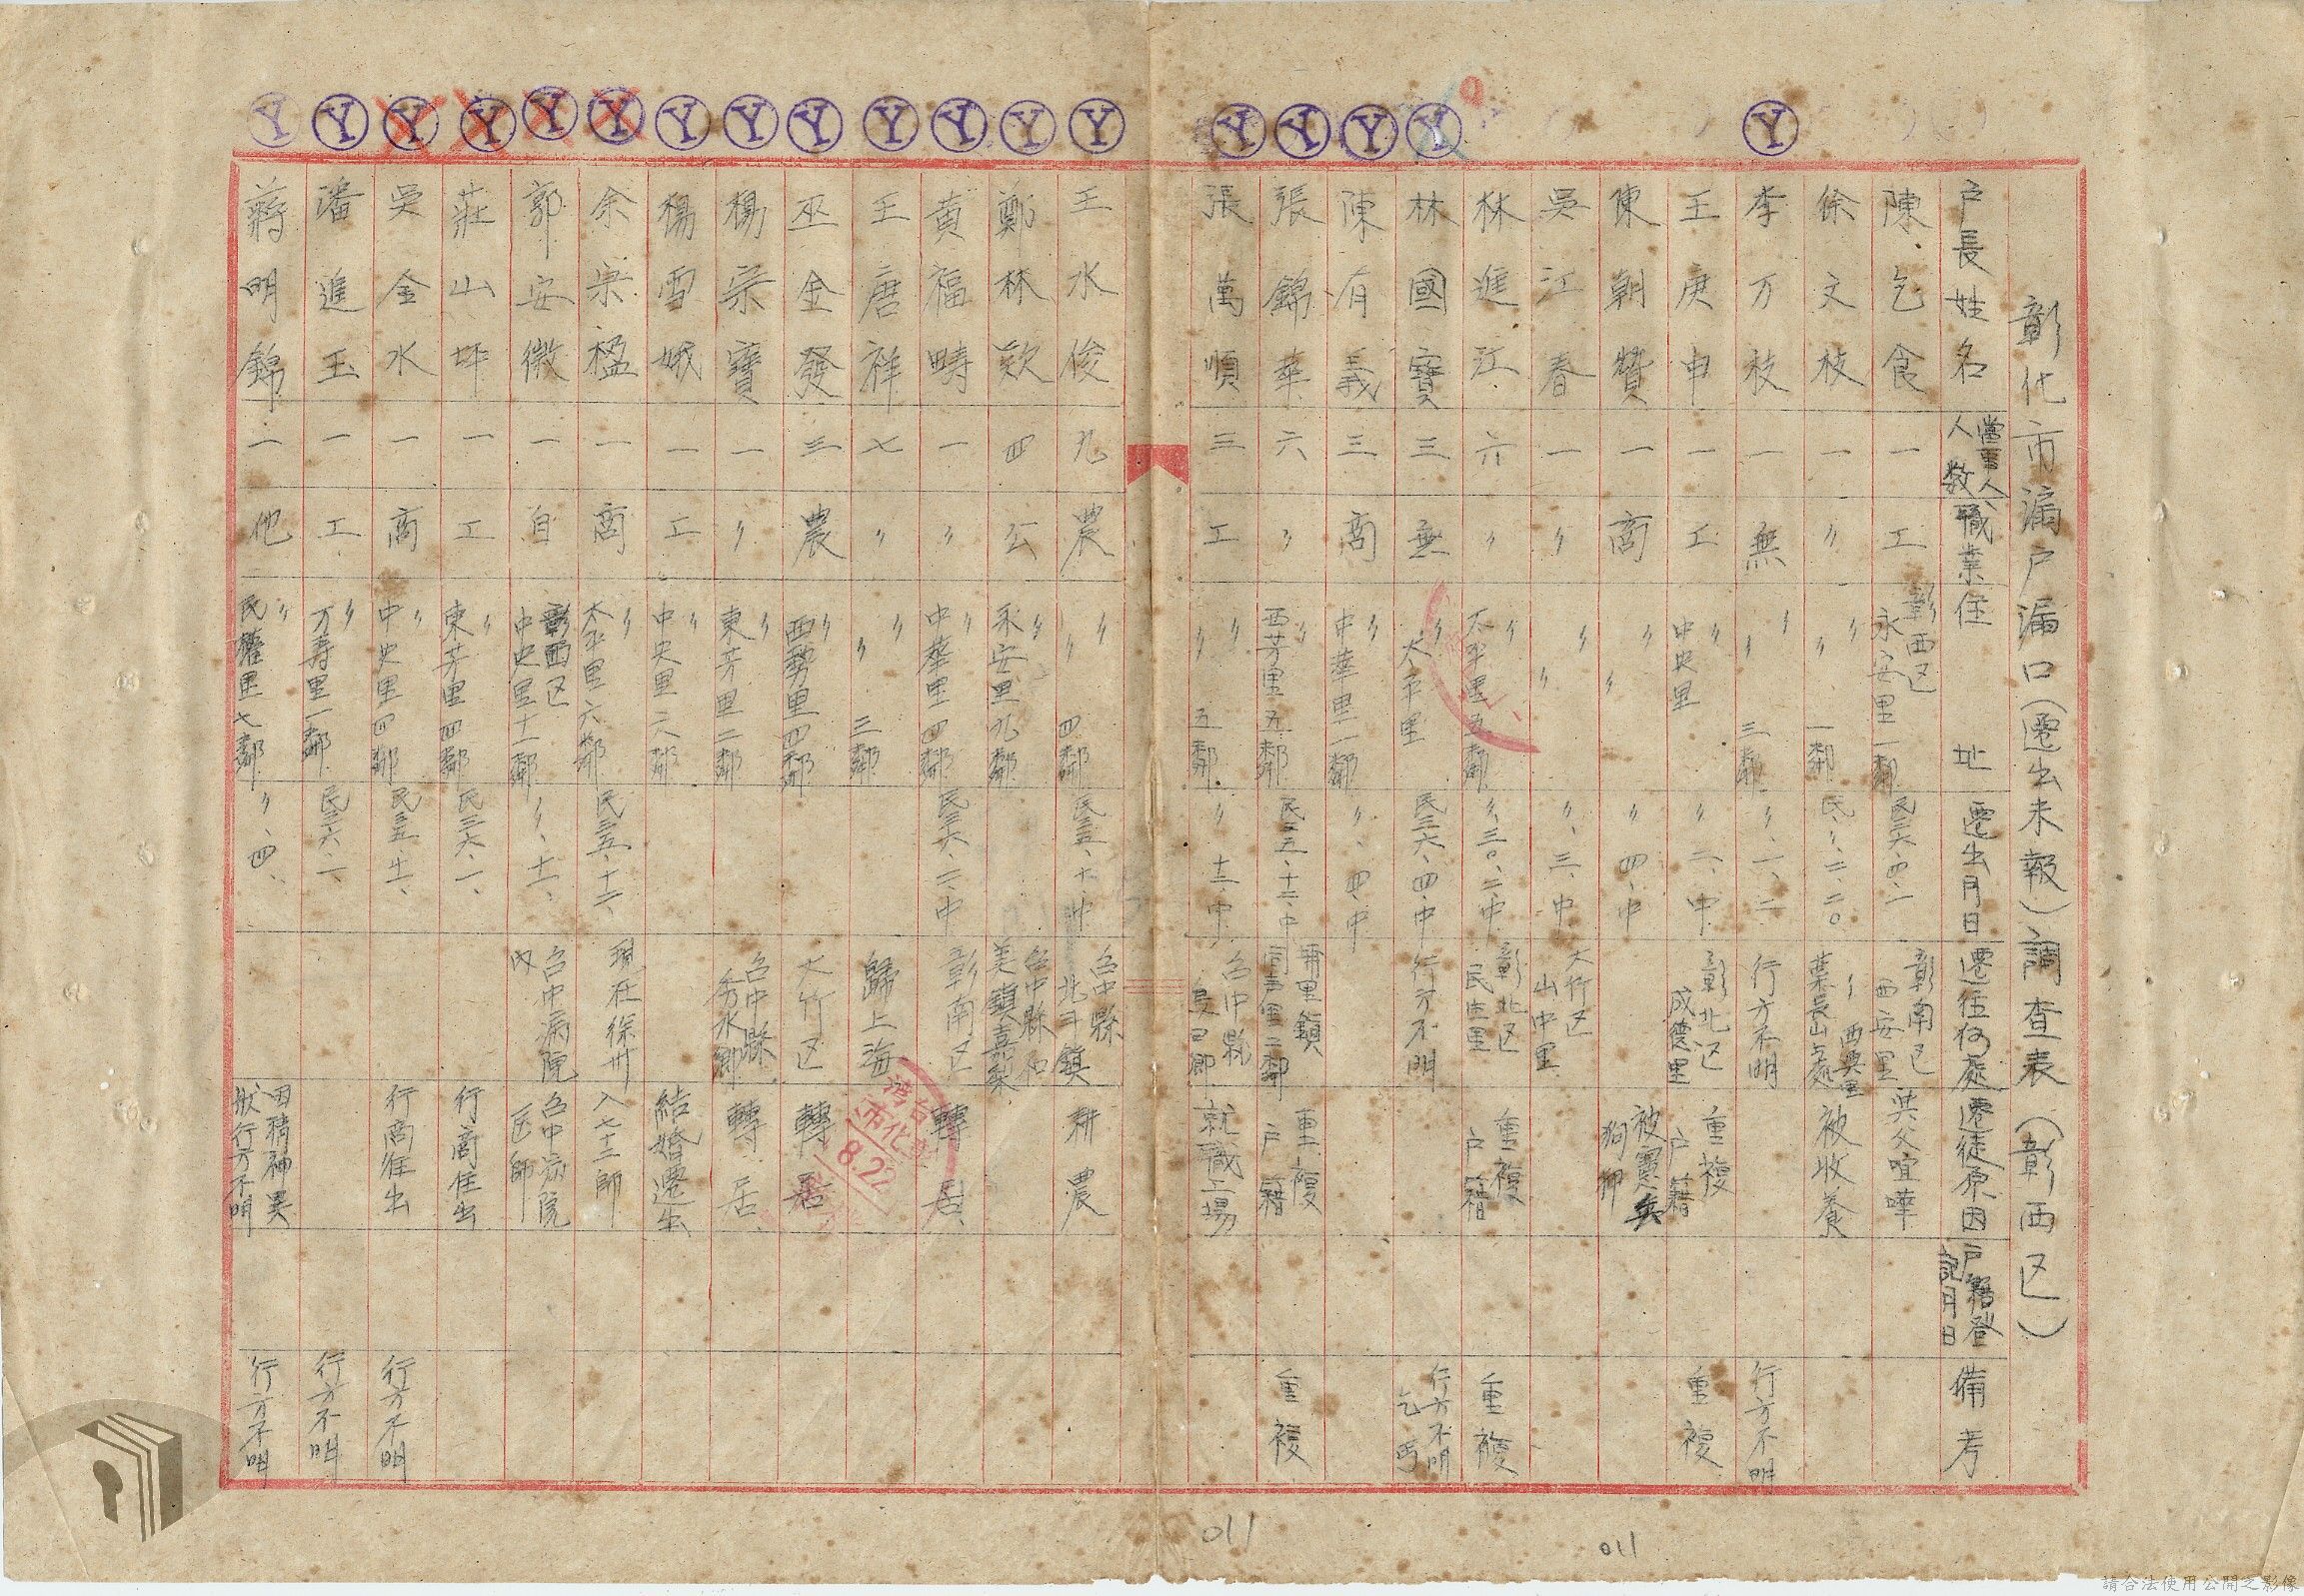 彰化市漏戶漏口(遷出未報)調查表(彰西区)
戶長姓名 當事人人數 職業 住址 遷出月日 遷往何處 遷徙原因 戶籍登記月日 備考
陳乞食 一 工 彰西区永安里一鄰 民三六、四、一 彰南区西安里 與父喧嘩
徐文枝 一 〃 〃〃一鄰 民〃、二、二〇 〃西興里葉長山處 被收養
李万枝 一 無 〃〃三鄰 〃、一、二 行方不明 行方不明
王庚申 一 工 〃中央里 〃二、中 彰北区成德里 重複戶籍 重複
陳朝贊 一 商 〃〃 〃四、中 被憲兵狗押
吳江春 一 〃 〃〃 〃、三、中 大竹区山中里
林進江 六 〃 〃太平里五鄰 〃、三〇、二、中 彰北区民生里 重複戶籍 重複
林國寶 三 無 〃太平里 民三六、四、中 行方不明 行方不明乞丐
陳有義 三 商 〃中華里一鄰 〃、四、中
張錦華 六 〃 〃西芳里五鄰 民三五、十二、中 埔里鎮同声里二鄰 重複戶籍 重複
張萬順 三 工 〃〃五鄰 〃十二、中 台中縣 就職工場
王水俊 九 農 〃〃四鄰 民三五、十、中 台中縣北斗鎮 耕農
鄭林欵 四 公 〃永安里九鄰 台中縣和美鎮嘉犁
黄福疇 一 〃 〃中華里四鄰 民三六、二、中 彰南区 轉居
王唐祥 七 〃 〃〃三鄰 歸上海
巫金發 三 農 〃西勢里四鄰 大竹区 轉居
楊宗寶 一 〃 〃東芳里二鄰 台中縣秀水鄉 轉居
楊雪娥 一 工 〃中央里二八鄰 結婚遷出
余宗楹 一 商 〃太平里六鄰 民三五、十二、 現在徐州 入七十二師
郭安微 一 自 彰西区中央里十一鄰 〃、十一、 台中病院內 台中病院医師
莊山坪 一 工 〃東芳里四鄰 民三六、一、 行商住出
吳金水 一 商 〃中央里四鄰 民三五、十一、 行商住出 行方不明
潘進玉 一 工 〃万寿里一鄰 民三六、二、 行方不明
蔣明錦 一 他 〃民權里七鄰 〃、四、 因精神異狀行方不明 行方不明
8.22
011
011
請合法使用公開之影像